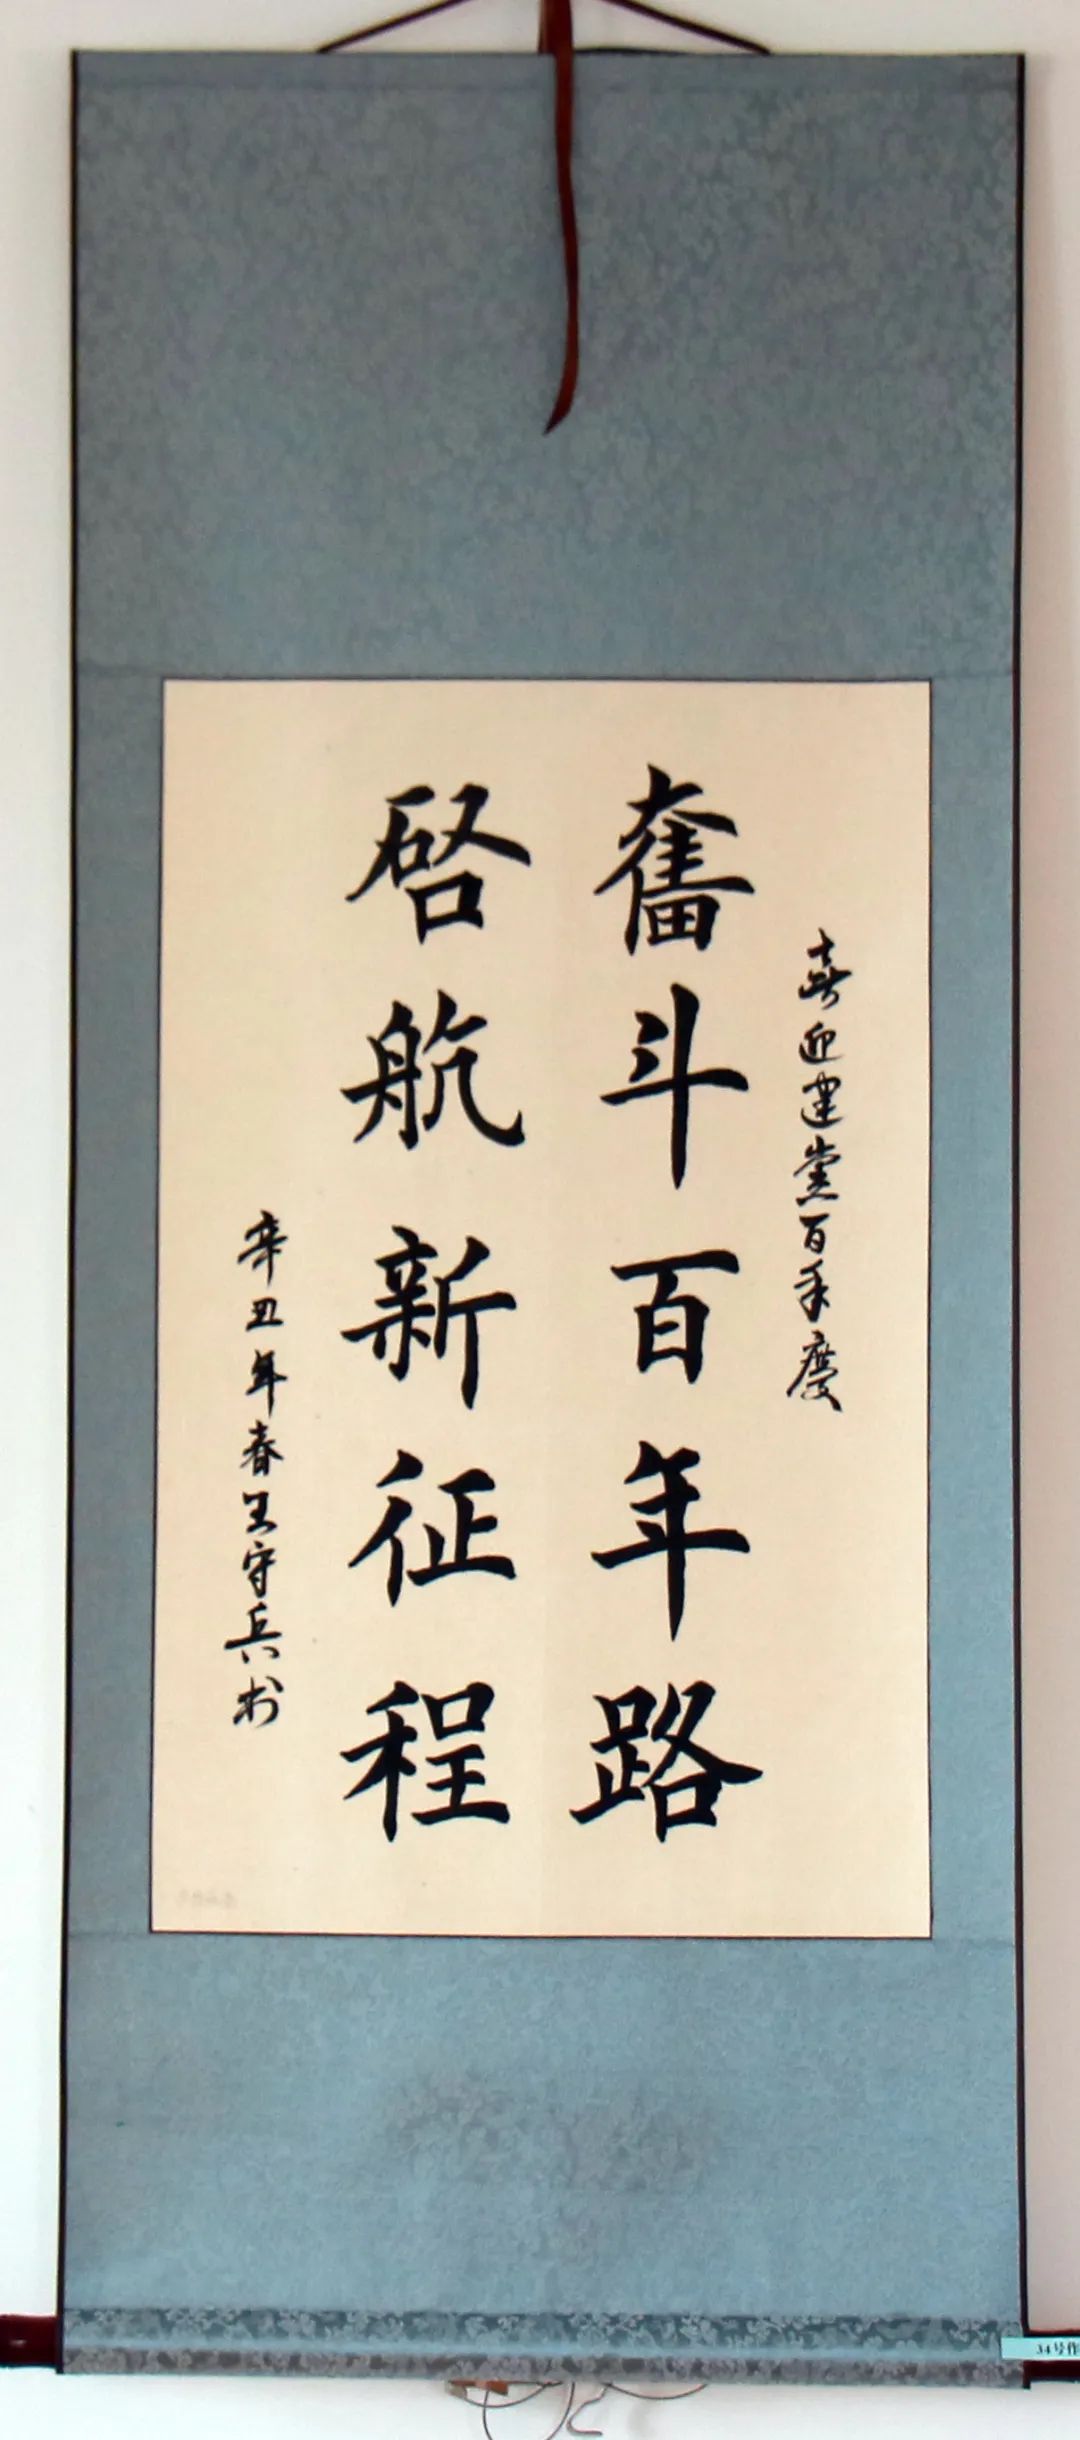 喜迎建党百年慶
奮斗百年路
啓航新征程
辛丑年春王守兵书
34号作